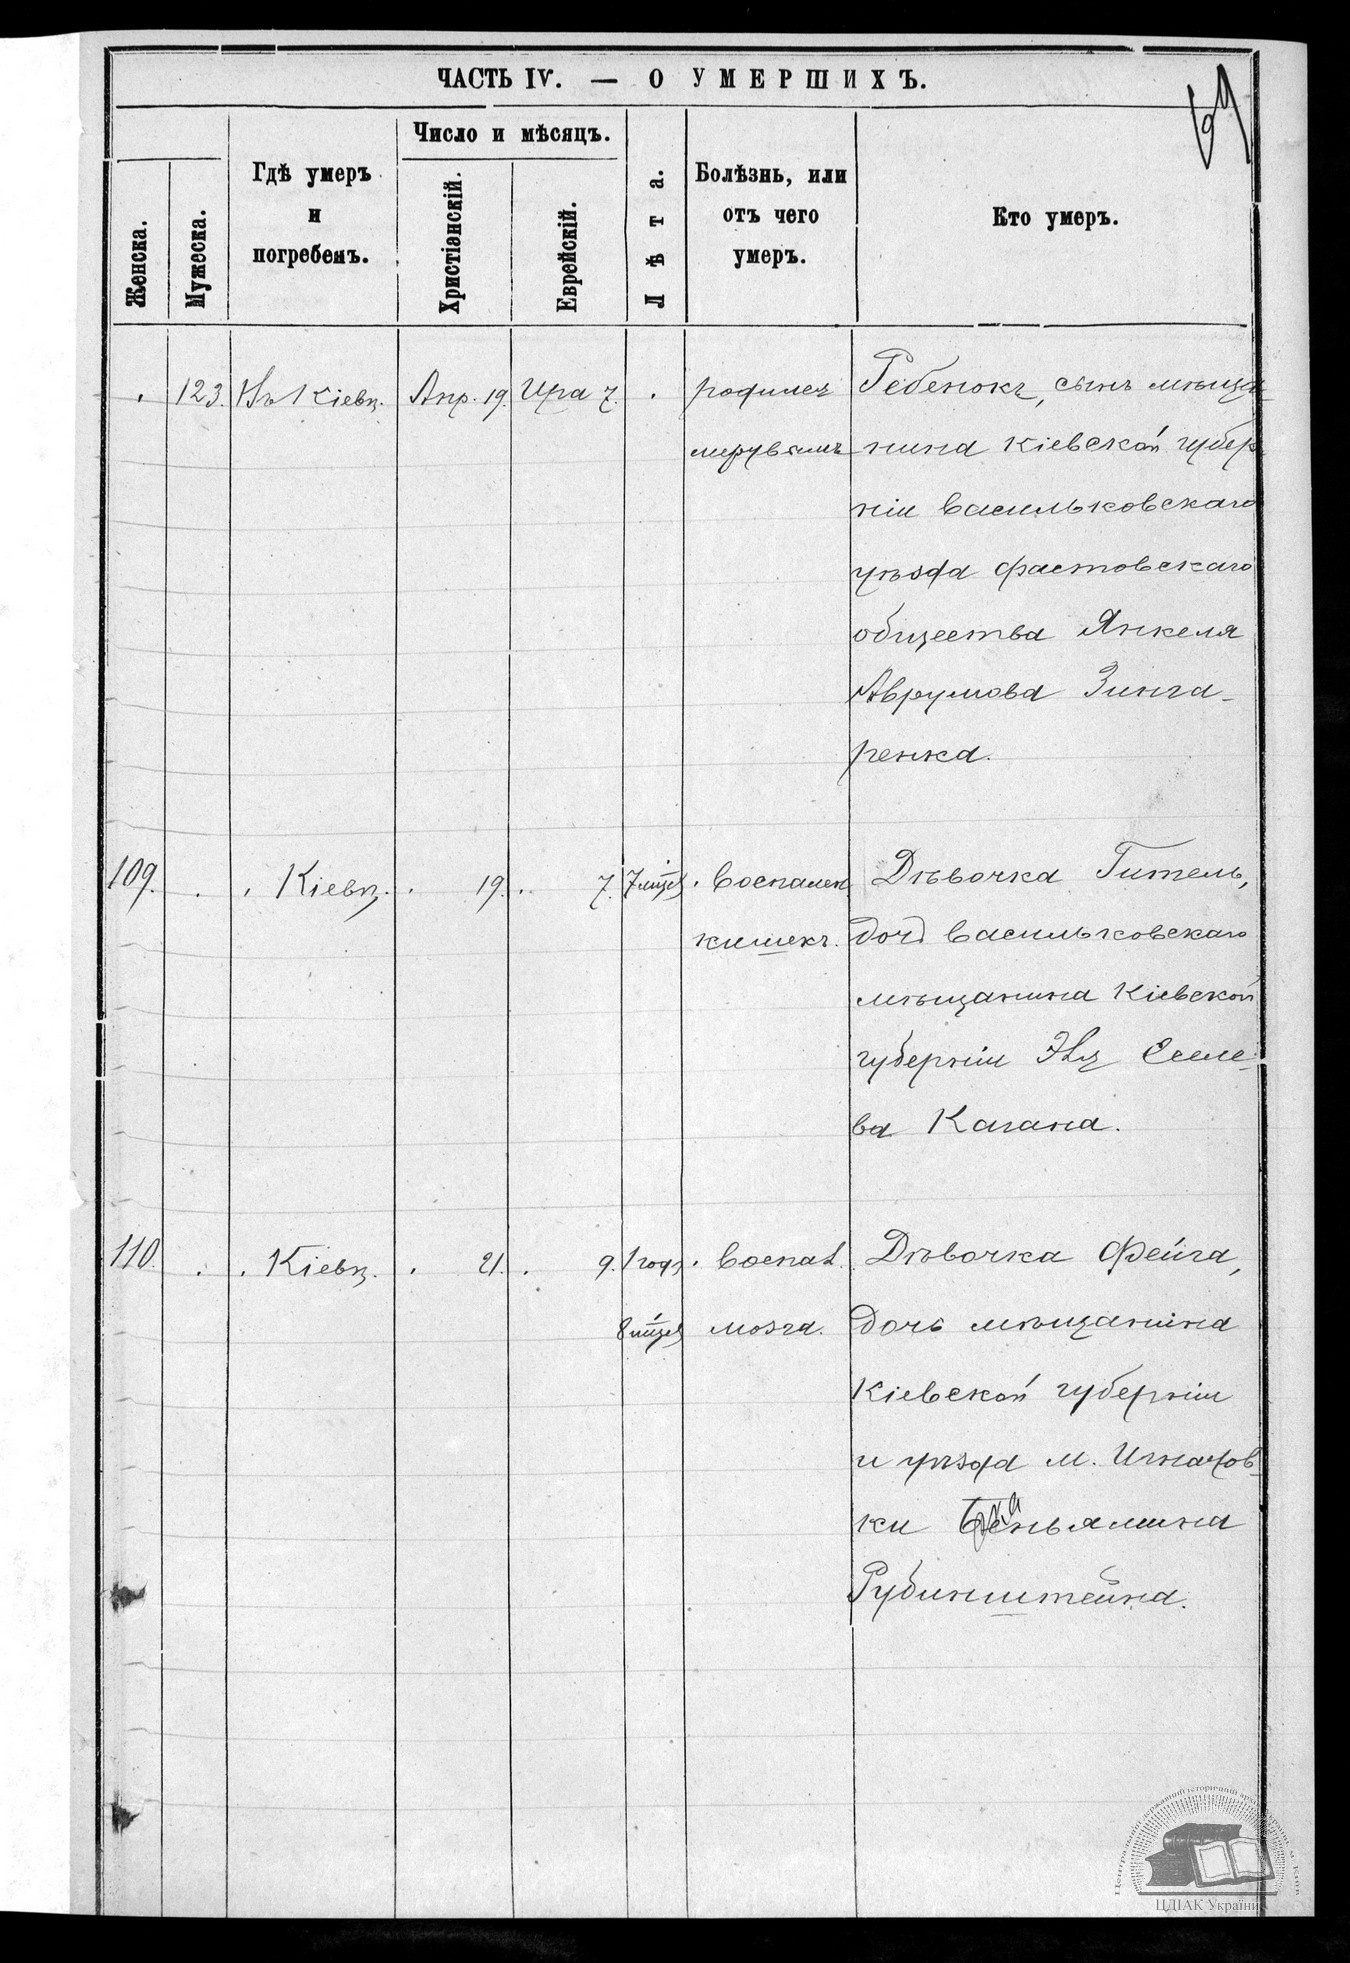 ЧАСТЬ IV. — О УМЕРШИХЪ.
69
Женска.
Мужеска.
Гдѣ умеръ
и
погребенъ.
Число и мѣсяцъ.
Христіянскій.
Еврейскій.
Лѣта.
Болѣзнь, или
отъ чего
умеръ.
Кто умеръ.
123. Въ Кіевѣ. Апр. 19. Ира 7. родился Ребенокъ, сынъ мѣща-
мертвымъ нина Кіевской губер-
ніи Васильковскаго
уѣзда Фастовскаго
общества Янкеля
Аврумова Зинга-
ренка.
109. Кіевѣ. 19. 7. 7 мѣс. Воспален. Дѣвочка Гитель,
кишекъ. дочь Васильковскаго
мѣщанина Кіевской
губерніи
ва Кагана.
110. Кіевѣ. 21. 9. 1 годъ Воспал. Дѣвочка Фейга,
8 мѣс. мозга. дочь мѣщанина
Кіевской губерніи
и уѣзда м. Игнатов-
ки Беньямина
Рубинштейна.
ЦДІАК України